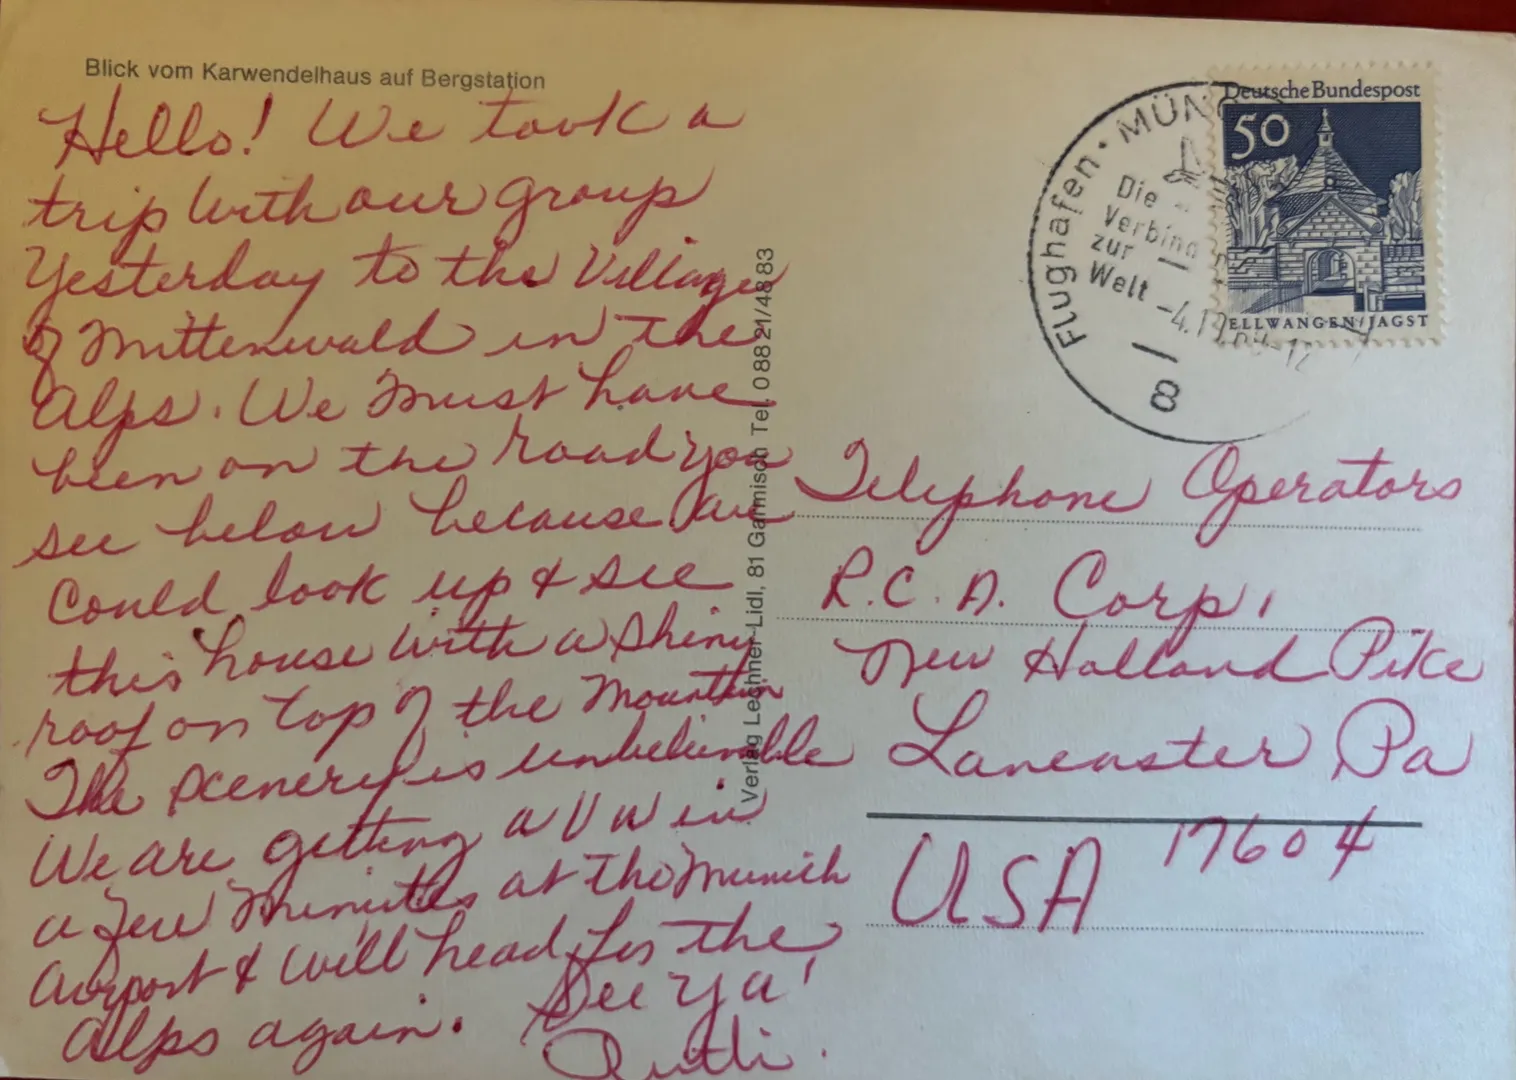 Blick vom Karwendelhaus auf Bergstation
Hello! We took a
trip with our group
Yesterday to the Village
of Mittenwald in the
Alps. We must have
been on the road you
see below because we
could look up & see
this house with a shiny
roof on top of the Mountain
The scenery is unbelievable
We are getting a VW in
a few minutes at the Munich
Airport & will head for the
Alps again. See ya!
Verlag Lechner-Lidl, 81 Garmisch Tel. 0 88 21/48 83
Deutsche Bundespost
50
ELLWANGEN/JAGST
Flughafen · MÜN
Die
Verbind
zur
Welt
8
Telephone Operators
R.C.A. Corp.
New Holland Pike
Lancaster Pa
17604
USA